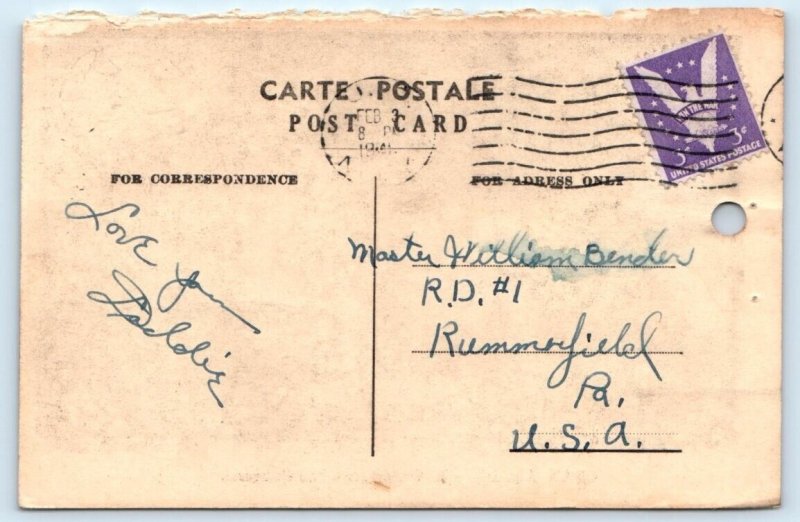 CARTE POSTALE
POST CARD
FEB 3
8 PM
FOR CORRESPONDENCE
FOR ADRESS ONLY
WIN THE WAR
3¢ 3¢
UNITED STATES POSTAGE
Love you
Daddie
Master William Bender
R.D. #1
Rummerfield
Pa.
U.S.A.